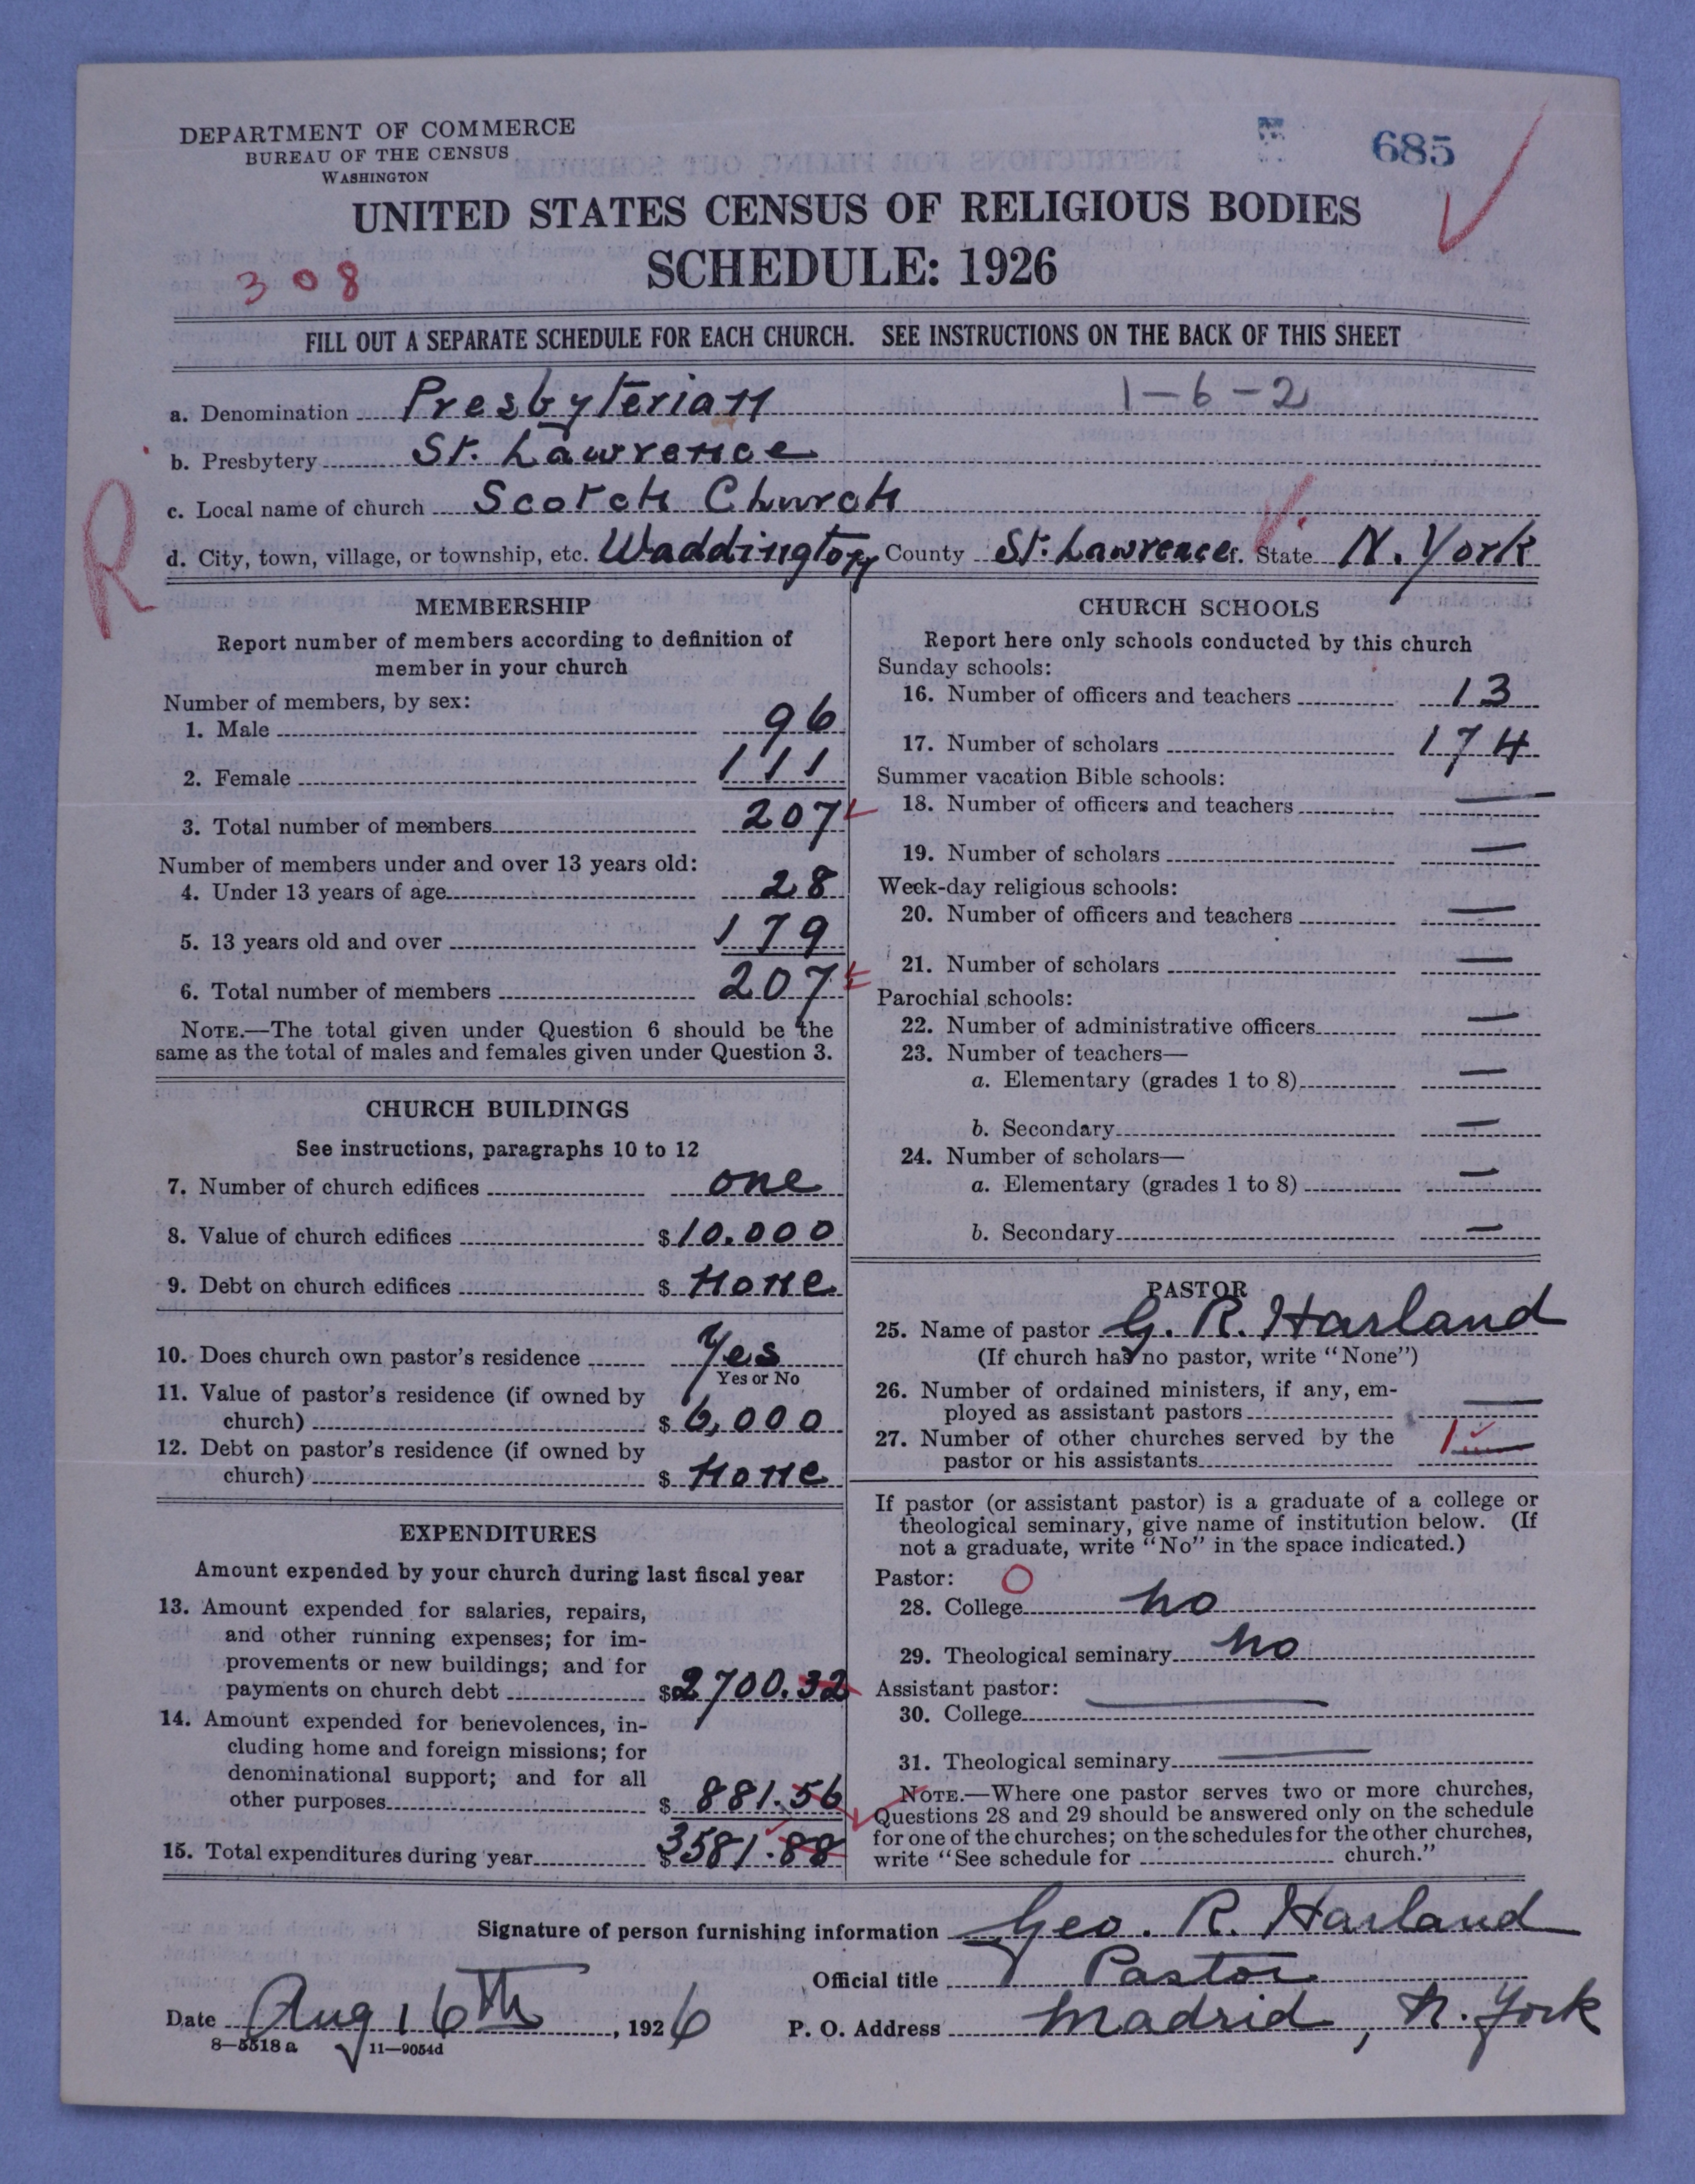 DEPARTMENT OF COMMERCE
BUREAU OF THE CENSUS
WASHINGTON
685
UNITED STATES CENSUS OF RELIGIOUS BODIES
SCHEDULE: 1926
308
FILL OUT A SEPARATE SCHEDULE FOR EACH CHURCH. SEE INSTRUCTIONS ON THE BACK OF THIS SHEET
a. Denomination Presbyterian 1-6-2
b. Presbytery St. Lawrence
c. Local name of church Scotch Church
R
d. City, town, village, or township, etc. Waddington County St. Lawrence State N. York
MEMBERSHIP
Report number of members according to definition of
member in your church
Number of members, by sex:
1. Male 96
2. Female 111
3. Total number of members 207
Number of members under and over 13 years old:
4. Under 13 years of age 28
5. 13 years old and over 179
6. Total number of members 207
NOTE.—The total given under Question 6 should be the
same as the total of males and females given under Question 3.
CHURCH BUILDINGS
See instructions, paragraphs 10 to 12
7. Number of church edifices one
8. Value of church edifices $10.000
9. Debt on church edifices $ None
10. Does church own pastor's residence Yes
Yes or No
11. Value of pastor's residence (if owned by
church) $ 6,000
12. Debt on pastor's residence (if owned by
church) $ None
EXPENDITURES
Amount expended by your church during last fiscal year
13. Amount expended for salaries, repairs,
and other running expenses; for im-
provements or new buildings; and for
payments on church debt $2700.32
14. Amount expended for benevolences, in-
cluding home and foreign missions; for
denominational support; and for all
other purposes $ 881.56
15. Total expenditures during year $3581.88
CHURCH SCHOOLS
Report here only schools conducted by this church
Sunday schools:
16. Number of officers and teachers 13
17. Number of scholars 174
Summer vacation Bible schools:
18. Number of officers and teachers —
19. Number of scholars —
Week-day religious schools:
20. Number of officers and teachers —
21. Number of scholars —
Parochial schools:
22. Number of administrative officers —
23. Number of teachers—
a. Elementary (grades 1 to 8) —
b. Secondary —
24. Number of scholars—
a. Elementary (grades 1 to 8) —
b. Secondary —
PASTOR
25. Name of pastor G. R. Harland
(If church has no pastor, write "None")
26. Number of ordained ministers, if any, em-
ployed as assistant pastors —
27. Number of other churches served by the 1
pastor or his assistants
If pastor (or assistant pastor) is a graduate of a college or
theological seminary, give name of institution below. (If
not a graduate, write "No" in the space indicated.)
Pastor: O
28. College no
29. Theological seminary no
Assistant pastor:
30. College —
31. Theological seminary —
NOTE.—Where one pastor serves two or more churches,
Questions 28 and 29 should be answered only on the schedule
for one of the churches; on the schedules for the other churches,
write "See schedule for church."
Signature of person furnishing information Geo. R. Harland
Official title Pastor
Date Aug 16th, 1926 P. O. Address Madrid, N. York
8—5518 a 11—9054d